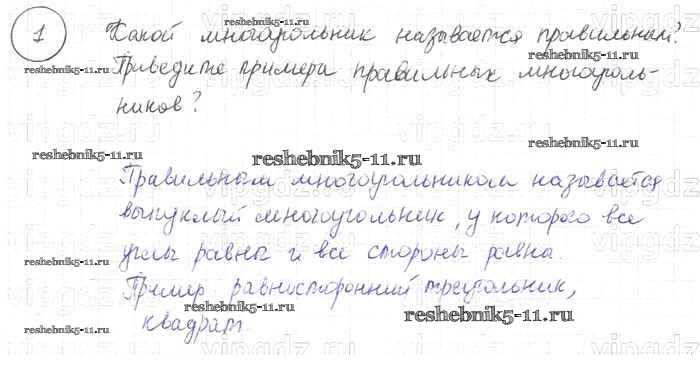 1 Какой многоугольник называется правильным?
Приведите примеры правильных многоуголь-
ников?
Правильным многоугольником называется
выпуклый многоугольник, у которого все
углы равны и все стороны равны.
Пример равносторонний треугольник,
квадрат
reshebnik5-11.ru
reshebnik5-11.ru
reshebnik5-11.ru
reshebnik5-11.ru
reshebnik5-11.ru
reshebnik5-11.ru
reshebnik5-11.ru
reshebnik5-11.ru
reshebnik5-11.ru
reshebnik5-11.ru